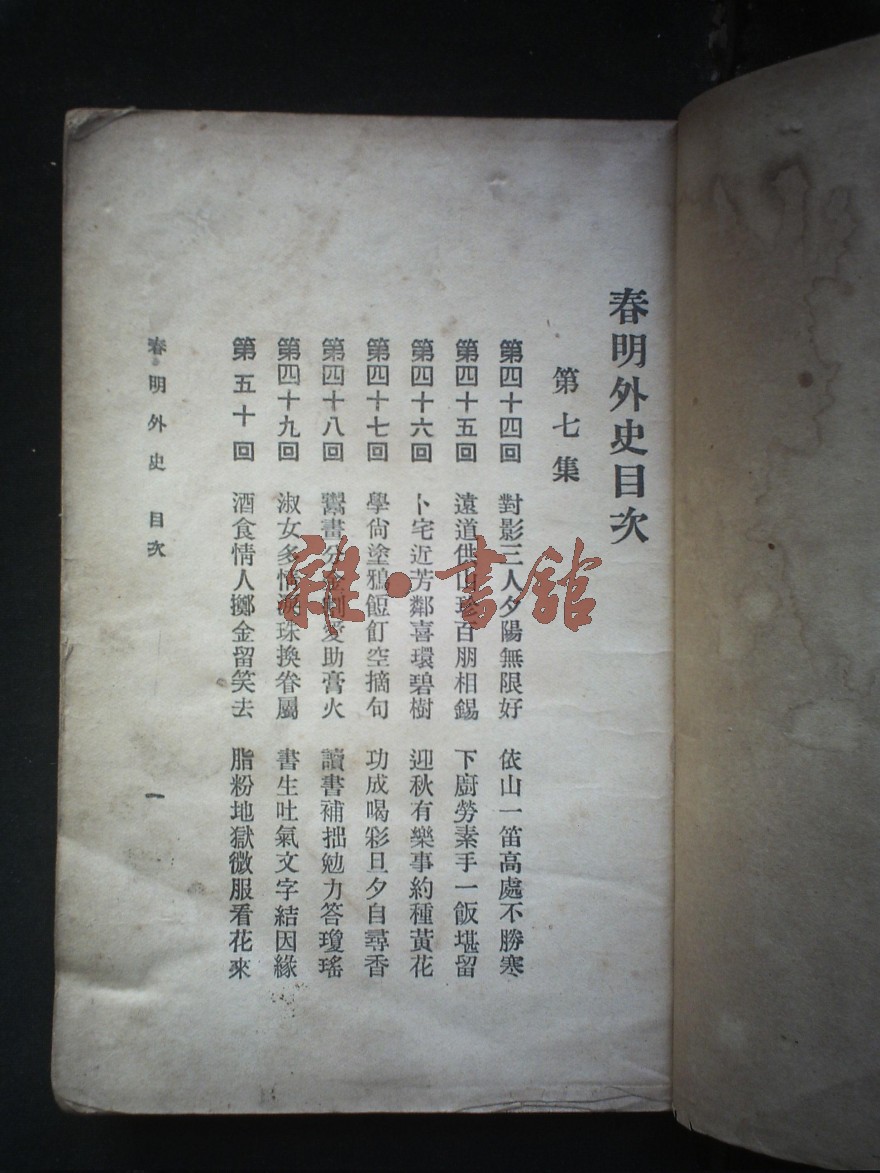 春明外史目次
第七集
第四十四回 對影三人夕陽無限好 依山一笛高處不勝寒
第四十五回 遠道供山珍百朋相錫 下廚勞素手一飯堪留
第四十六回 卜宅近芳鄰喜環碧樹 迎秋有樂事約種黃花
第四十七回 學尙塗鴉飣餖空摘句 功成喝彩旦夕自尋香
第四十八回 鬻畫分金割愛助膏火 讀書補拙勉力答瓊瑤
第四十九回 淑女多情淚珠換眷屬 書生吐氣文字結因緣
第五十回 酒食情人擲金留笑去 脂粉地獄微服看花來
春明外史 目次
一
雜·書館